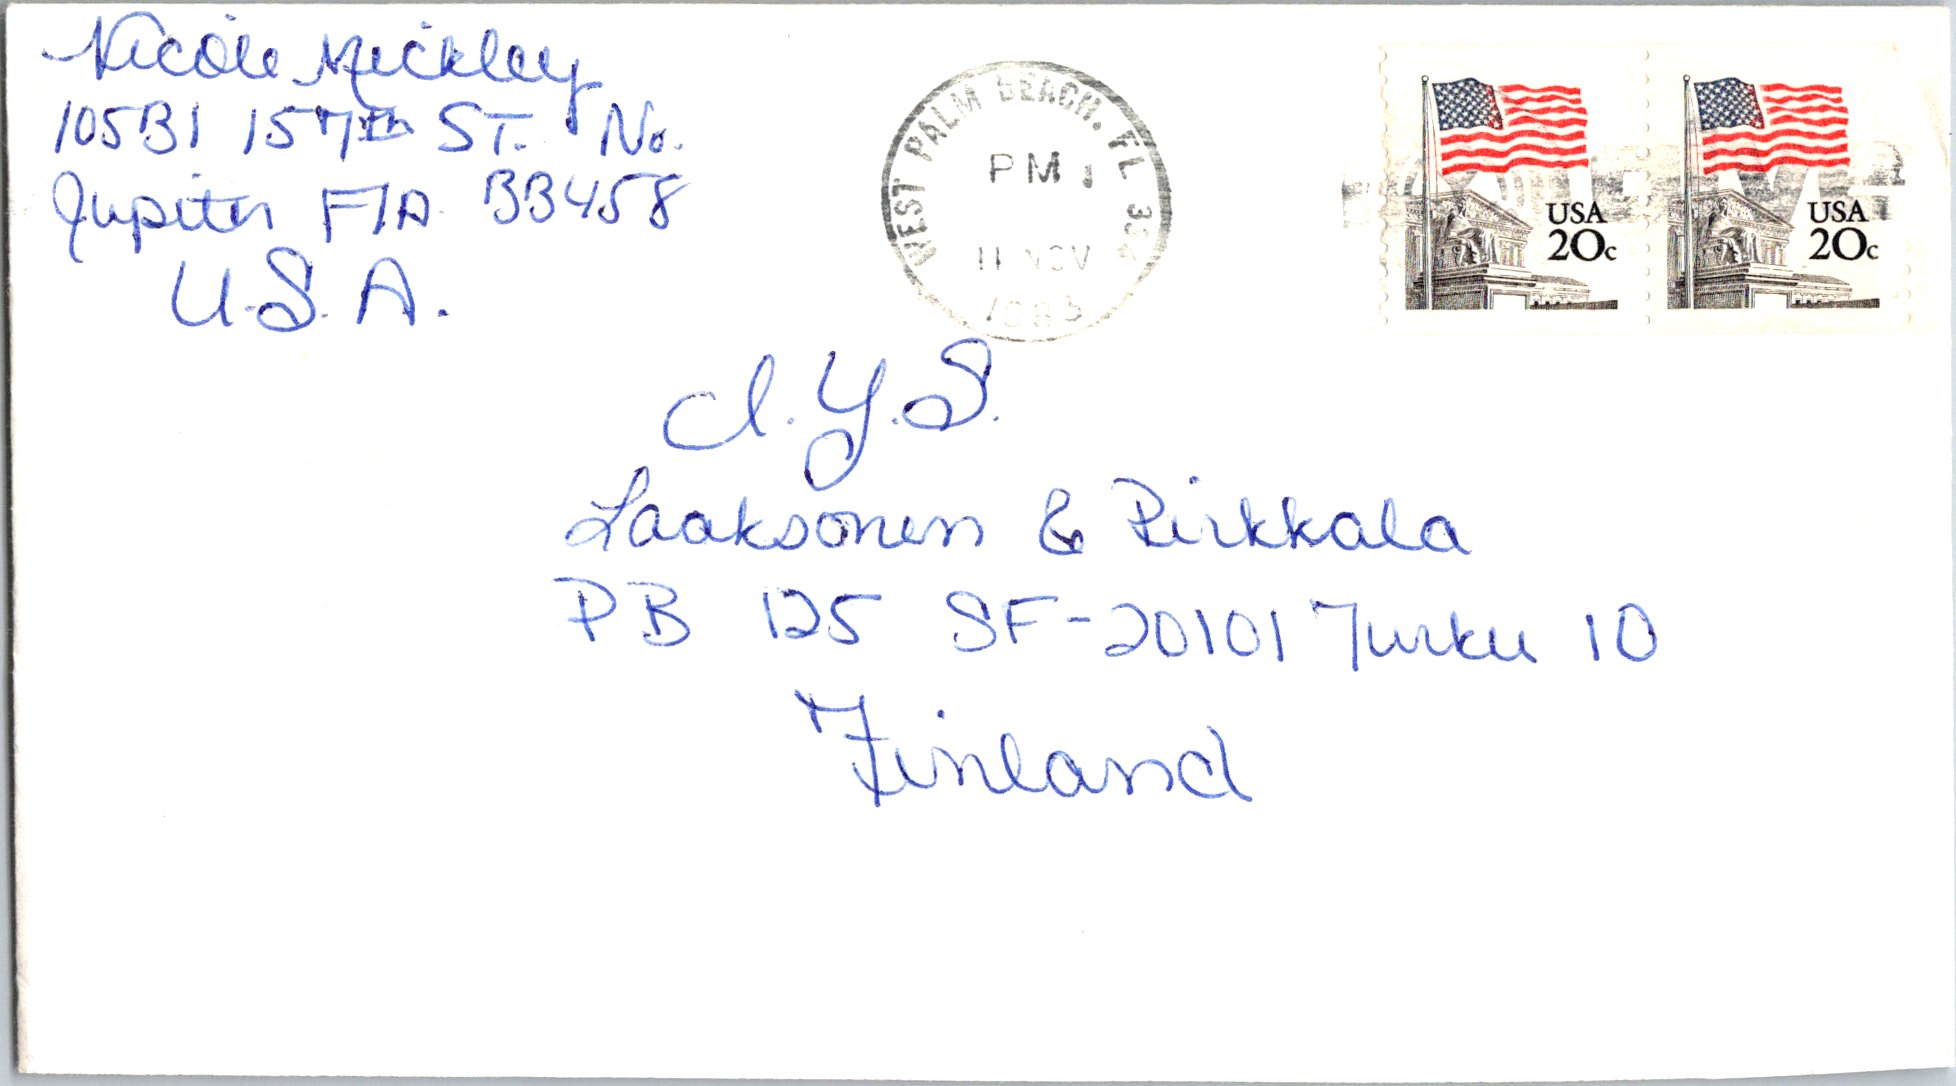 Nicole Mickley
10531 157th ST. No.
Jupiter FlA 33458
U.S.A.
WEST PALM BEACH, FL 334
PM
11 NOV
1985
USA
20c
USA
20c
I.Y.S.
Laaksonen & Pirkkala
PB 125 SF-20101 Turku 10
Finland